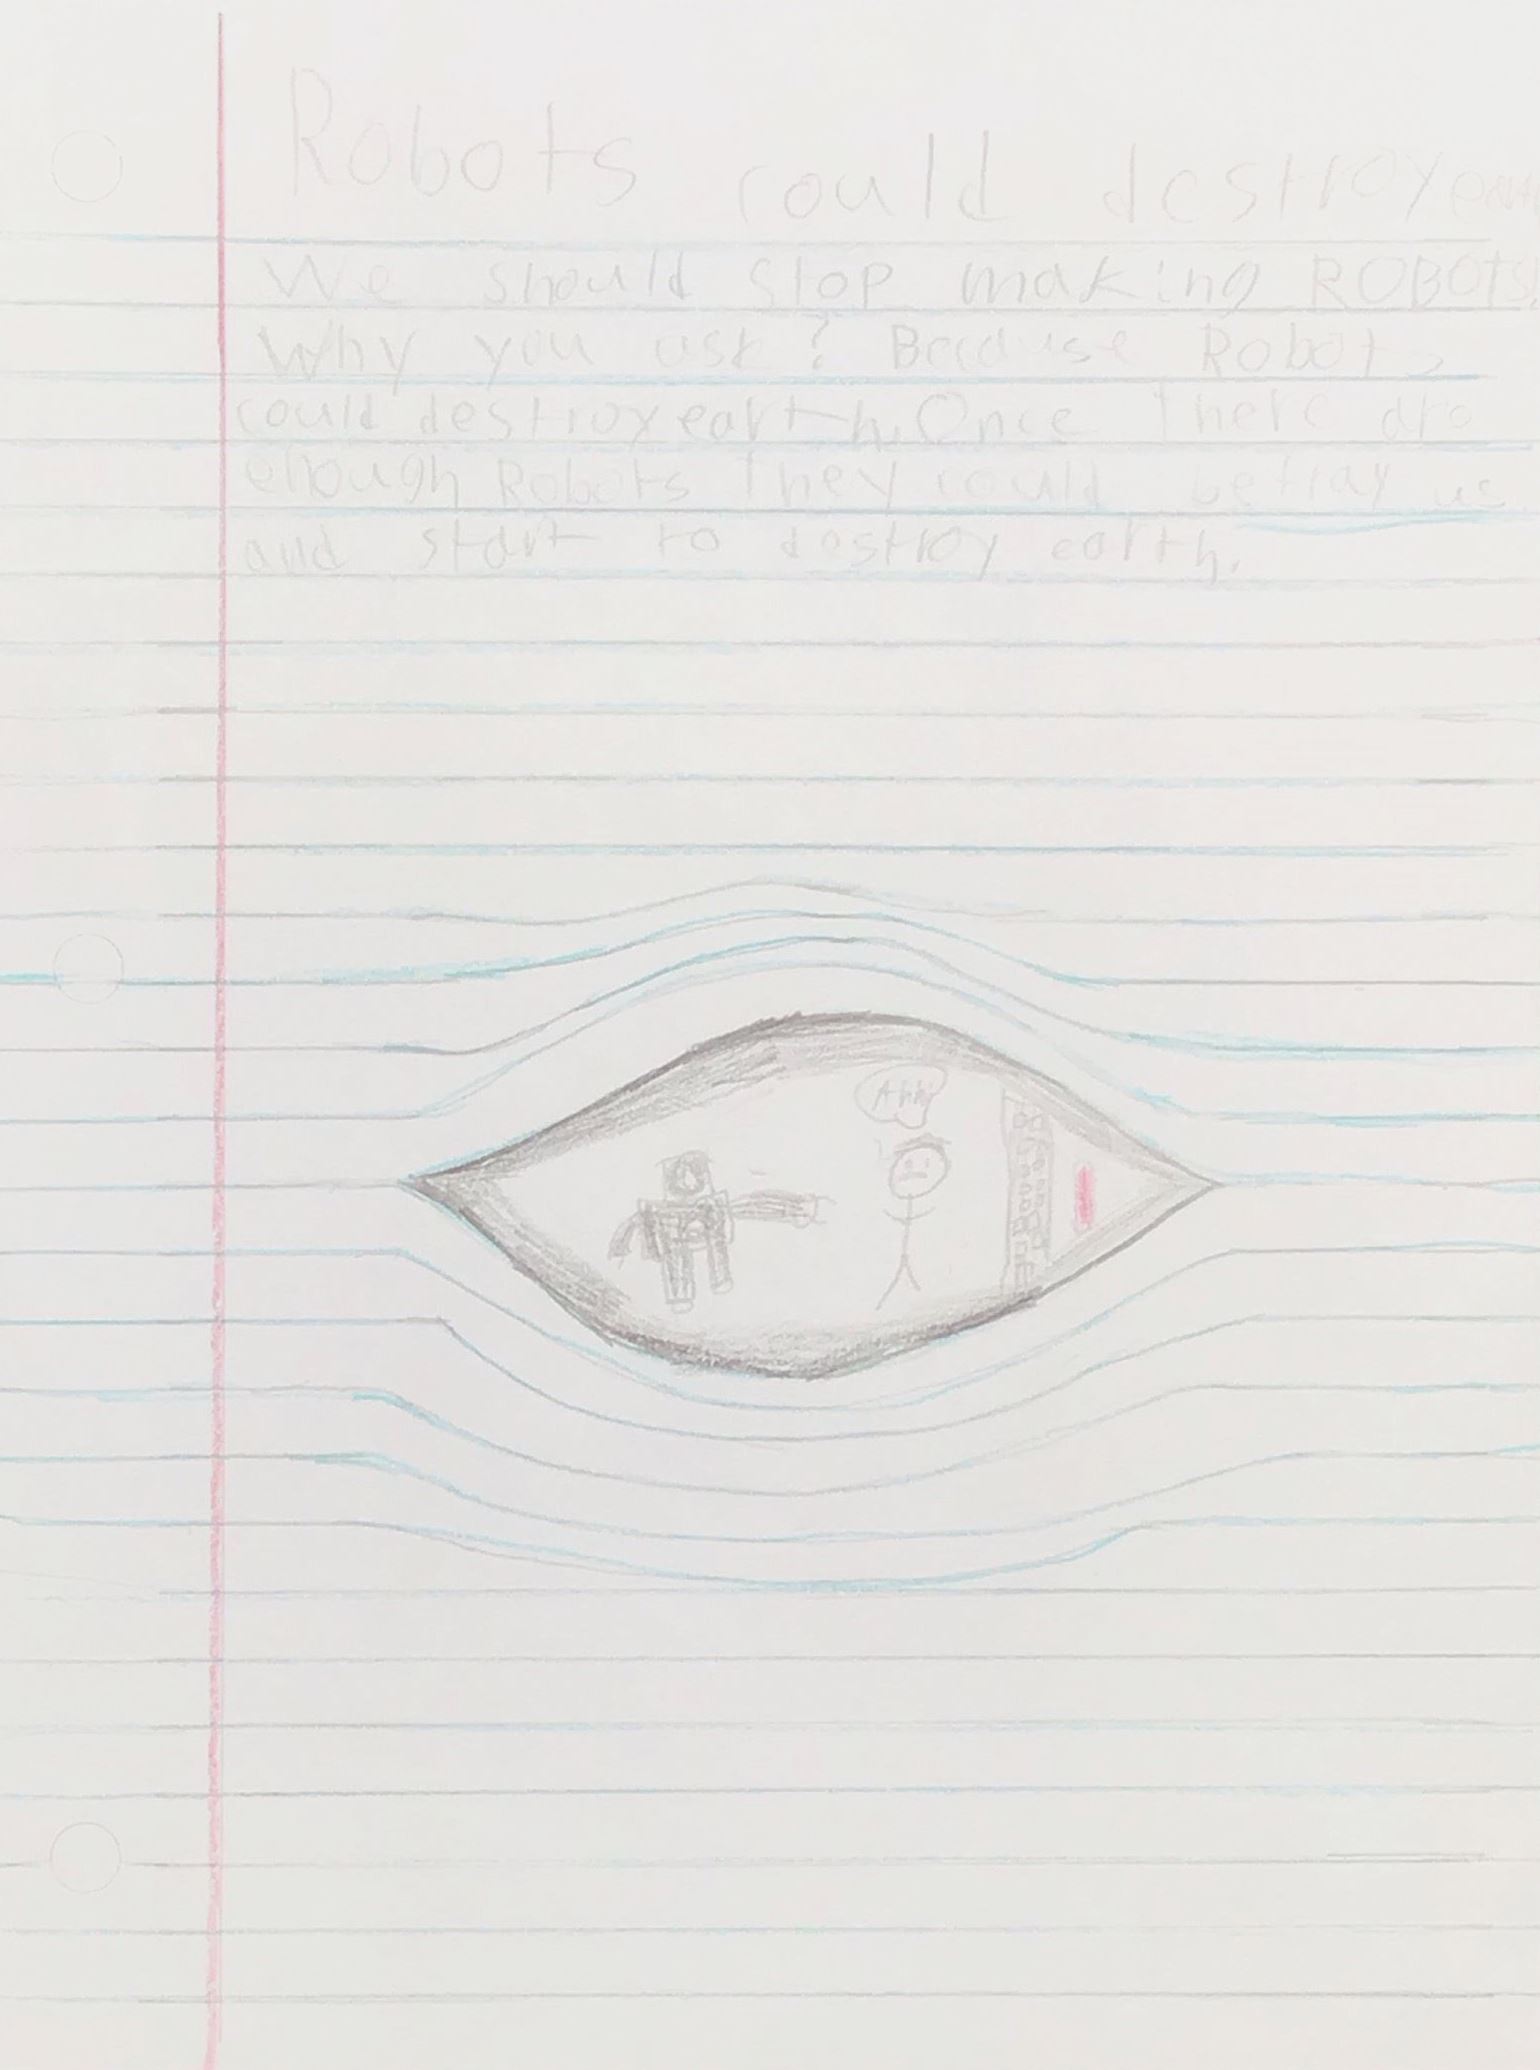 Robots could destroy earth
We should stop making ROBOTS!
Why you ask? Because Robots
could destroy earth. Once There are
enough Robots They could betray us
and start to destroy earth.
Ahh!